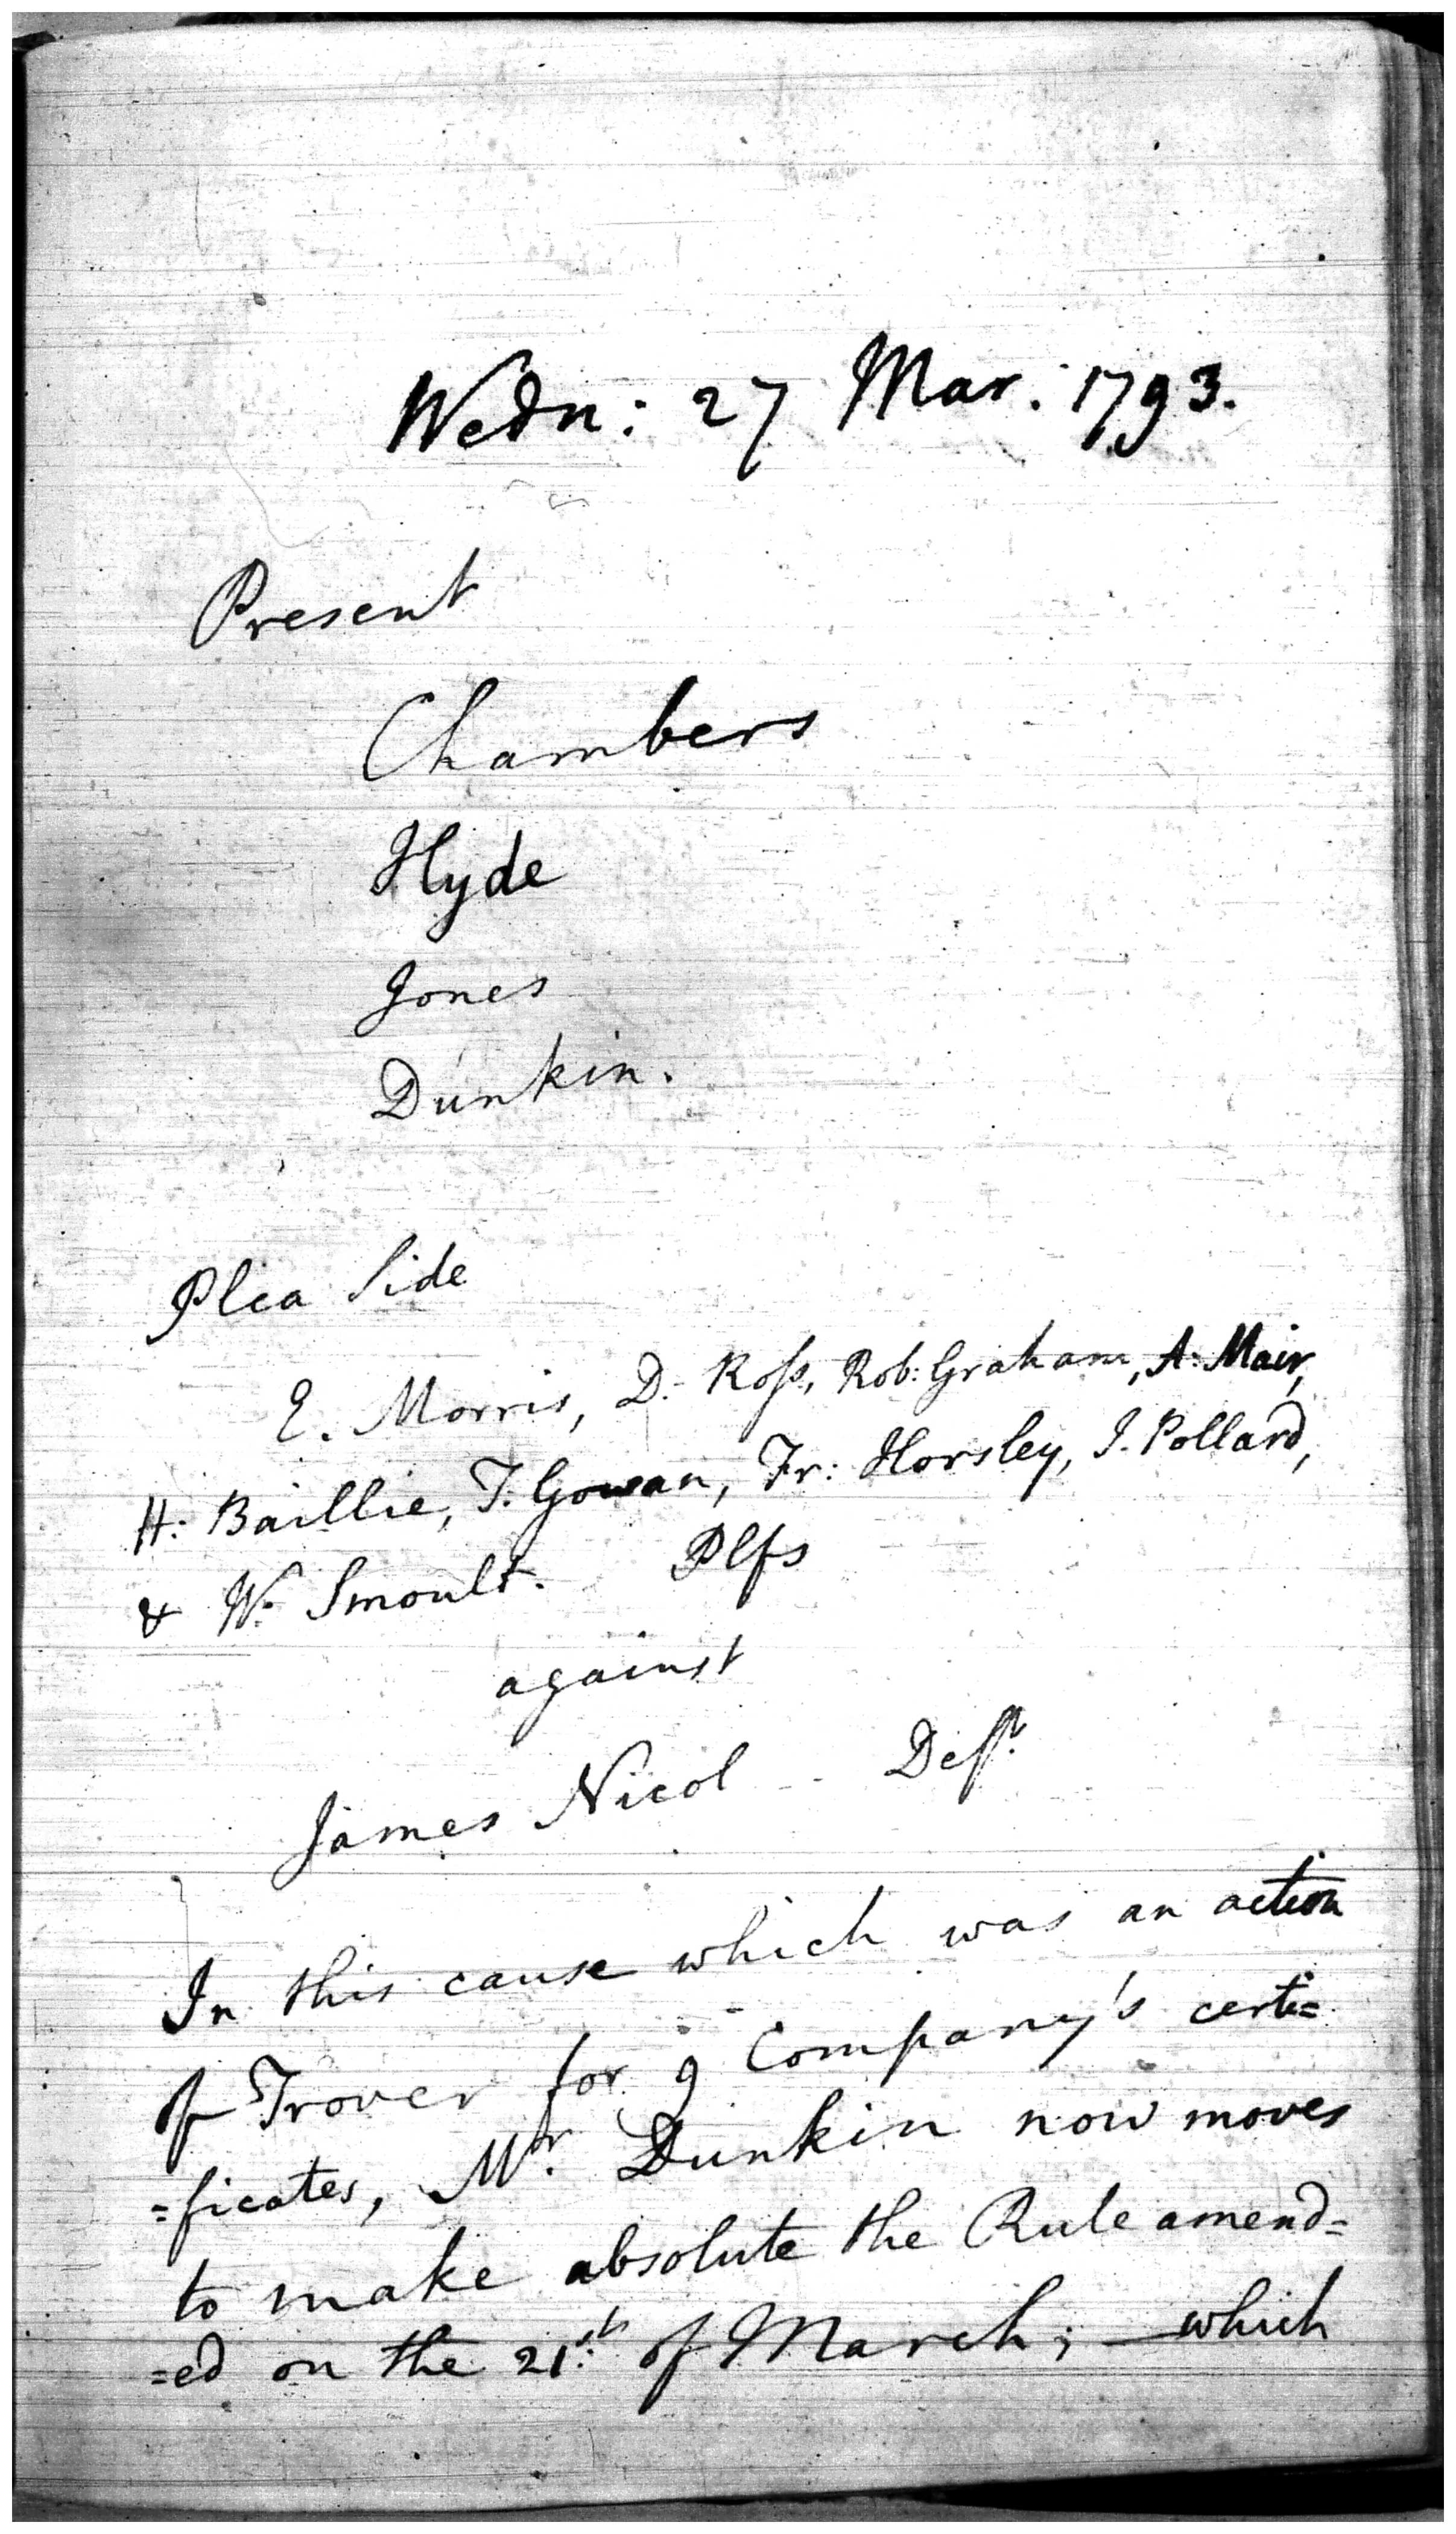 Wedn: 27 Mar: 1793.
Present
Chambers
Hyde
Jones
Dunkin.
Plea Side
E. Morris, D. Roſs, Rob: Graham, A: Mair,
H: Baillie, T. Gowan, Fr: Horsley, J. Pollard,
& W. Smoult. Plfs
against
James Nicol Deft.
In this cause which was an action
of Trover for 9 Company's certi=
=ficates, Mr. Dunkin now moves
to make absolute the Rule amend=
=ed on the 21st. of March; which